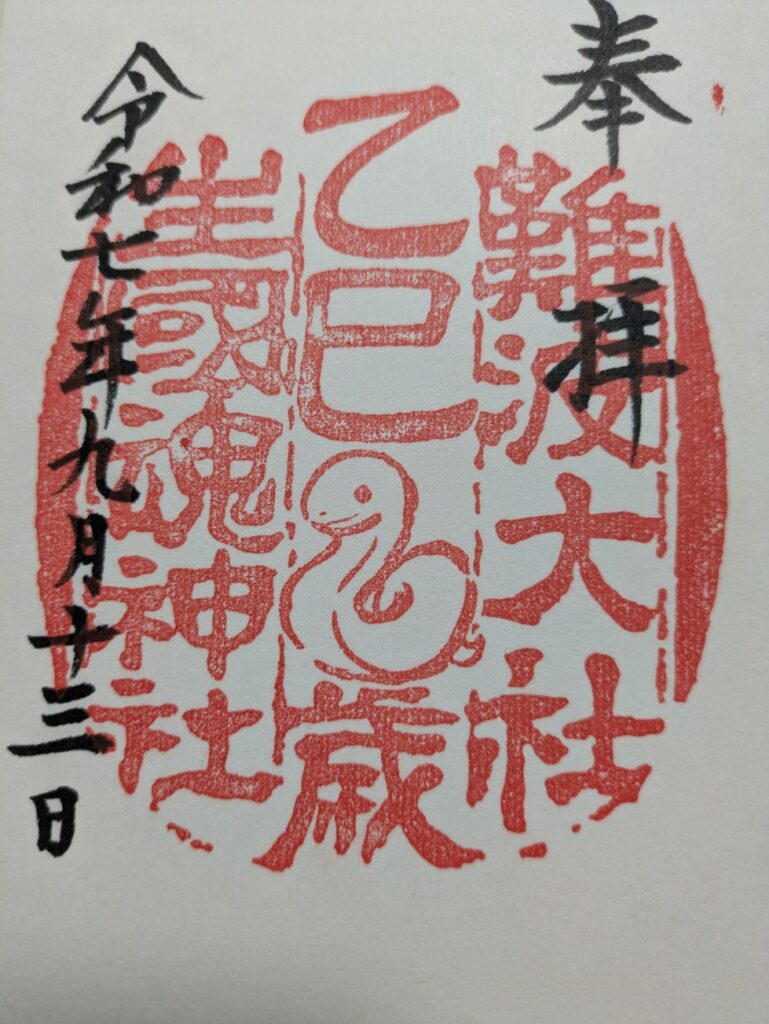 奉拝
難波大社
乙巳歳
生國魂神社
令和七年九月十三日